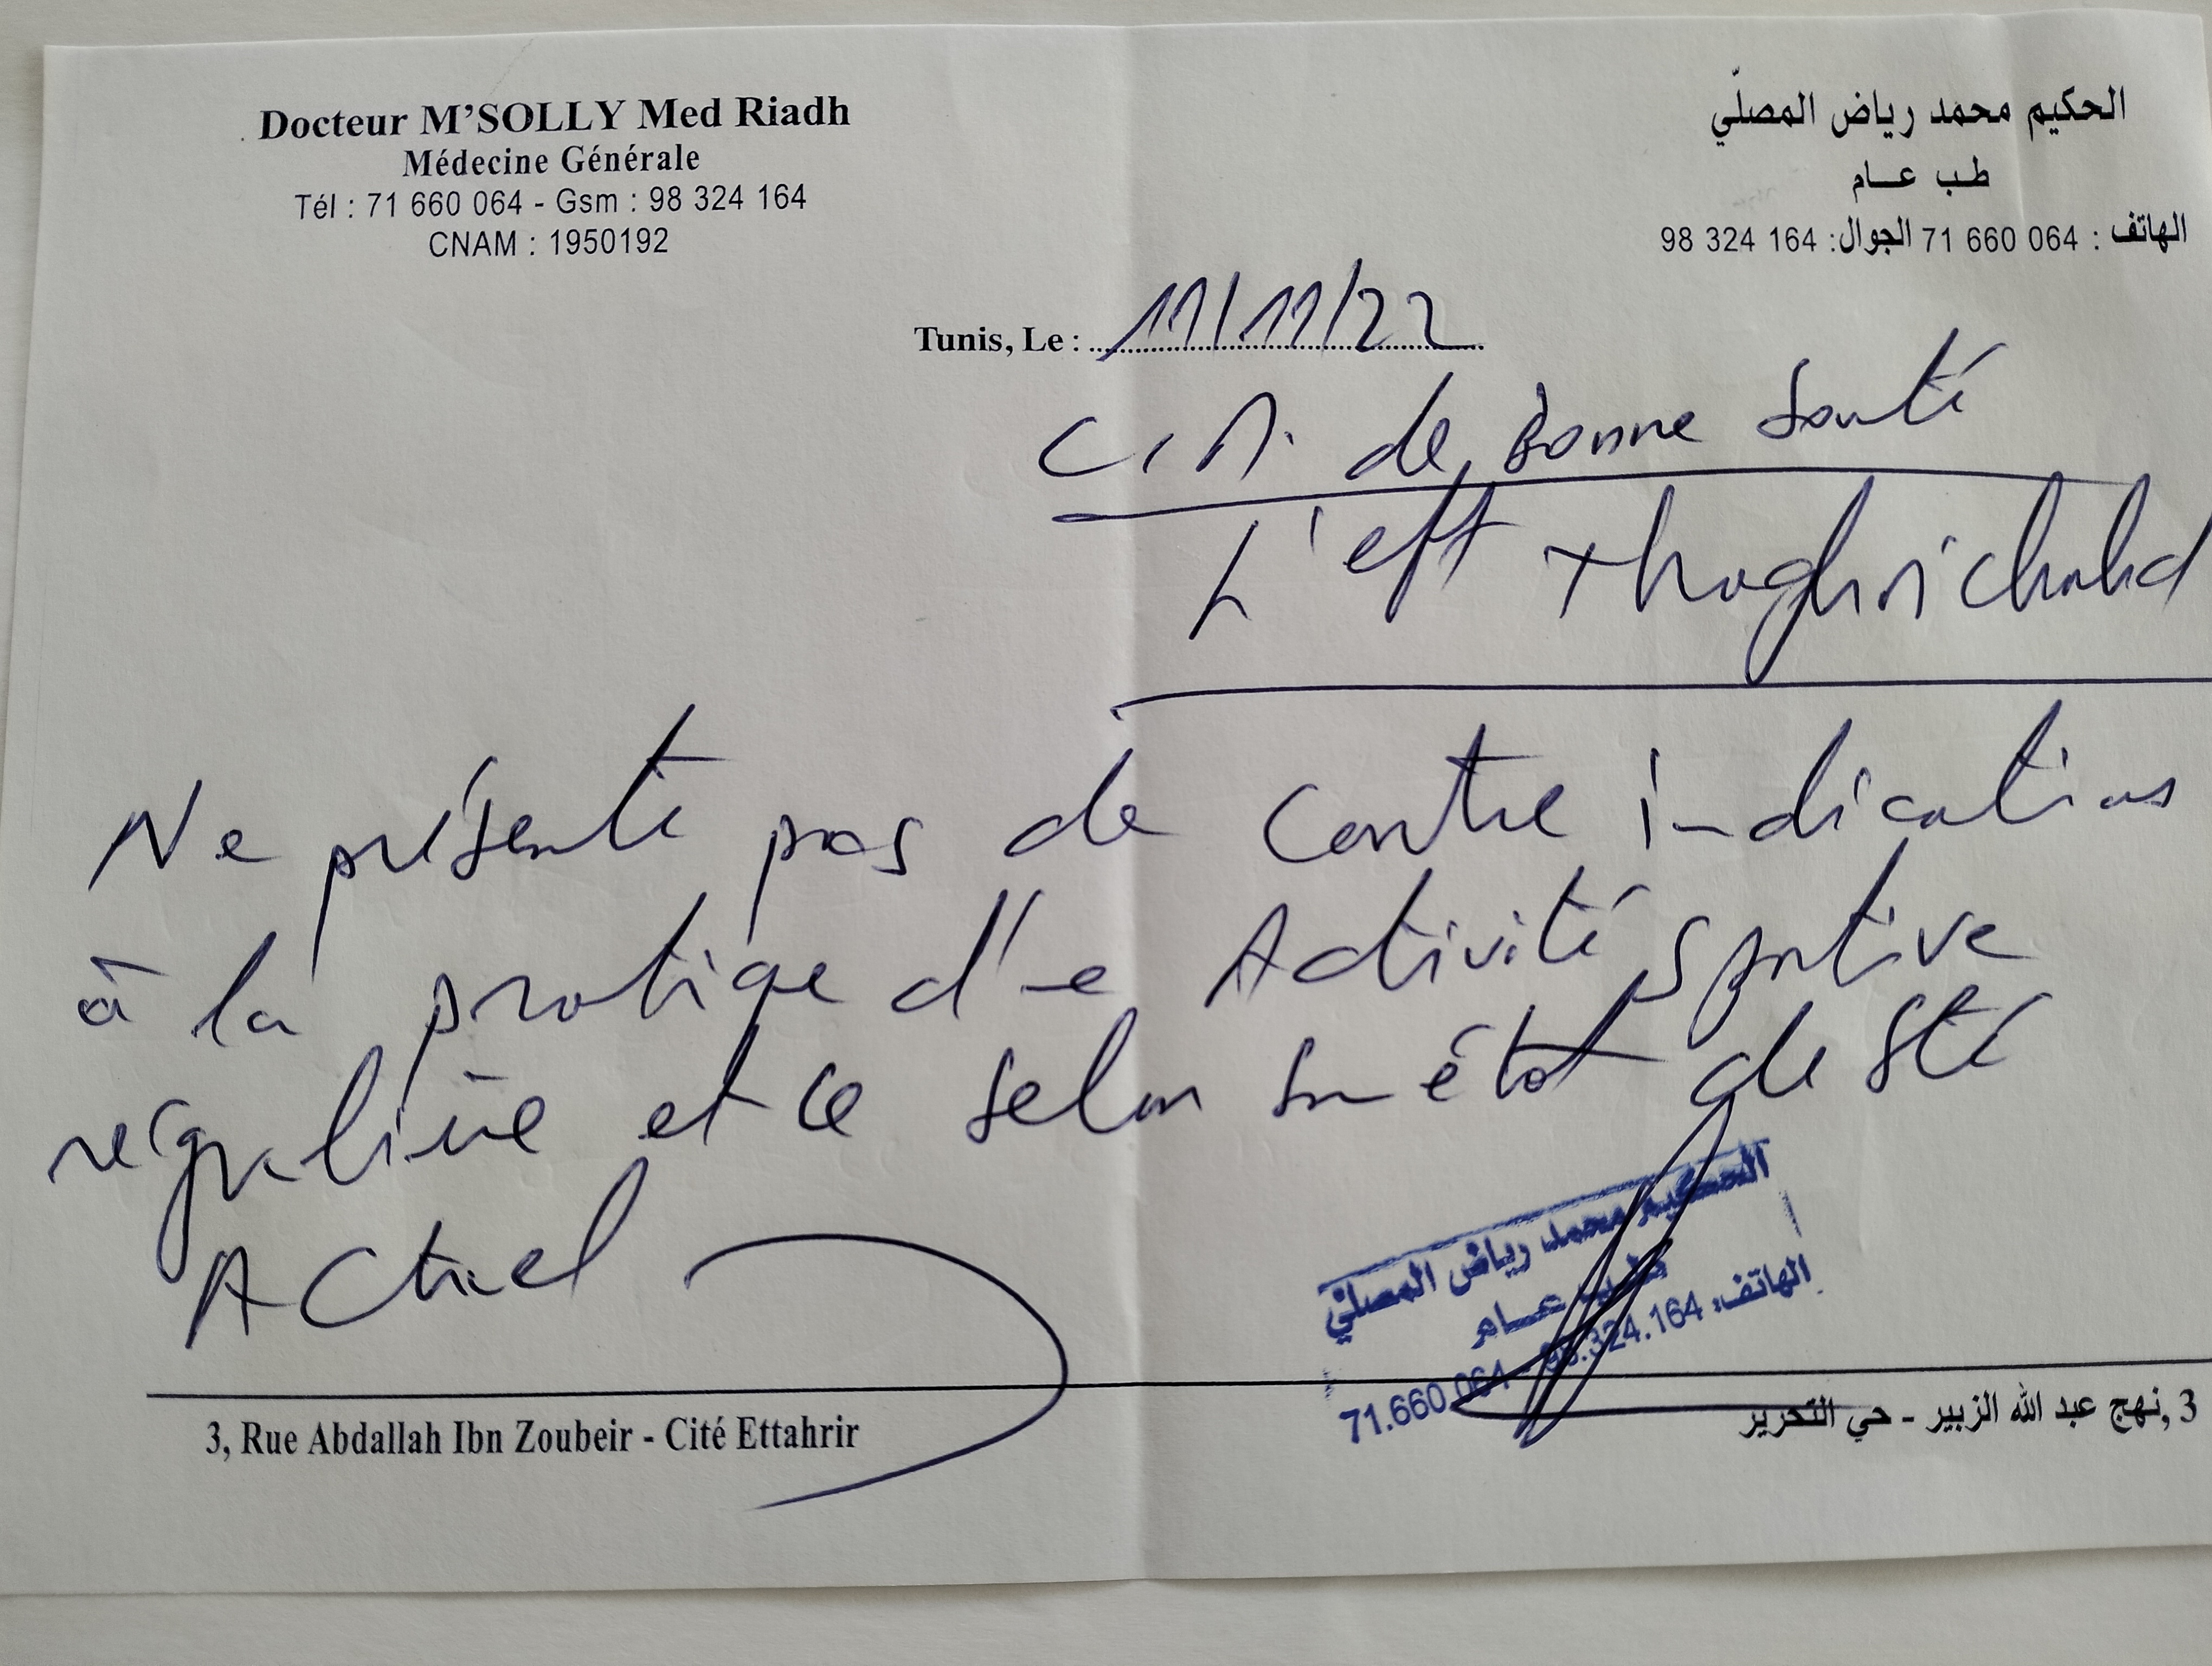 Docteur M'SOLLY Med Riadh
Médecine Générale
Tél : 71 660 064 - Gsm : 98 324 164
CNAM : 1950192
الحكيم محمد رياض المصلّي
طب عام
الهاتف : 71 660 064 الجوال: 98 324 164
Tunis, Le : 11/11/22
C.M. de Bonne Santé
L'eft
Ne présente pas de Contre indications
à la pratique d'une Activité sportive
régulière et ce selon son état de Sté
Actuel
الحكيم محمد رياض المصلي
طب عام
الهاتف: 98.324.164 - 71.660.064
3, Rue Abdallah Ibn Zoubeir - Cité Ettahrir
3, نهج عبد الله الزبير - حي التحرير